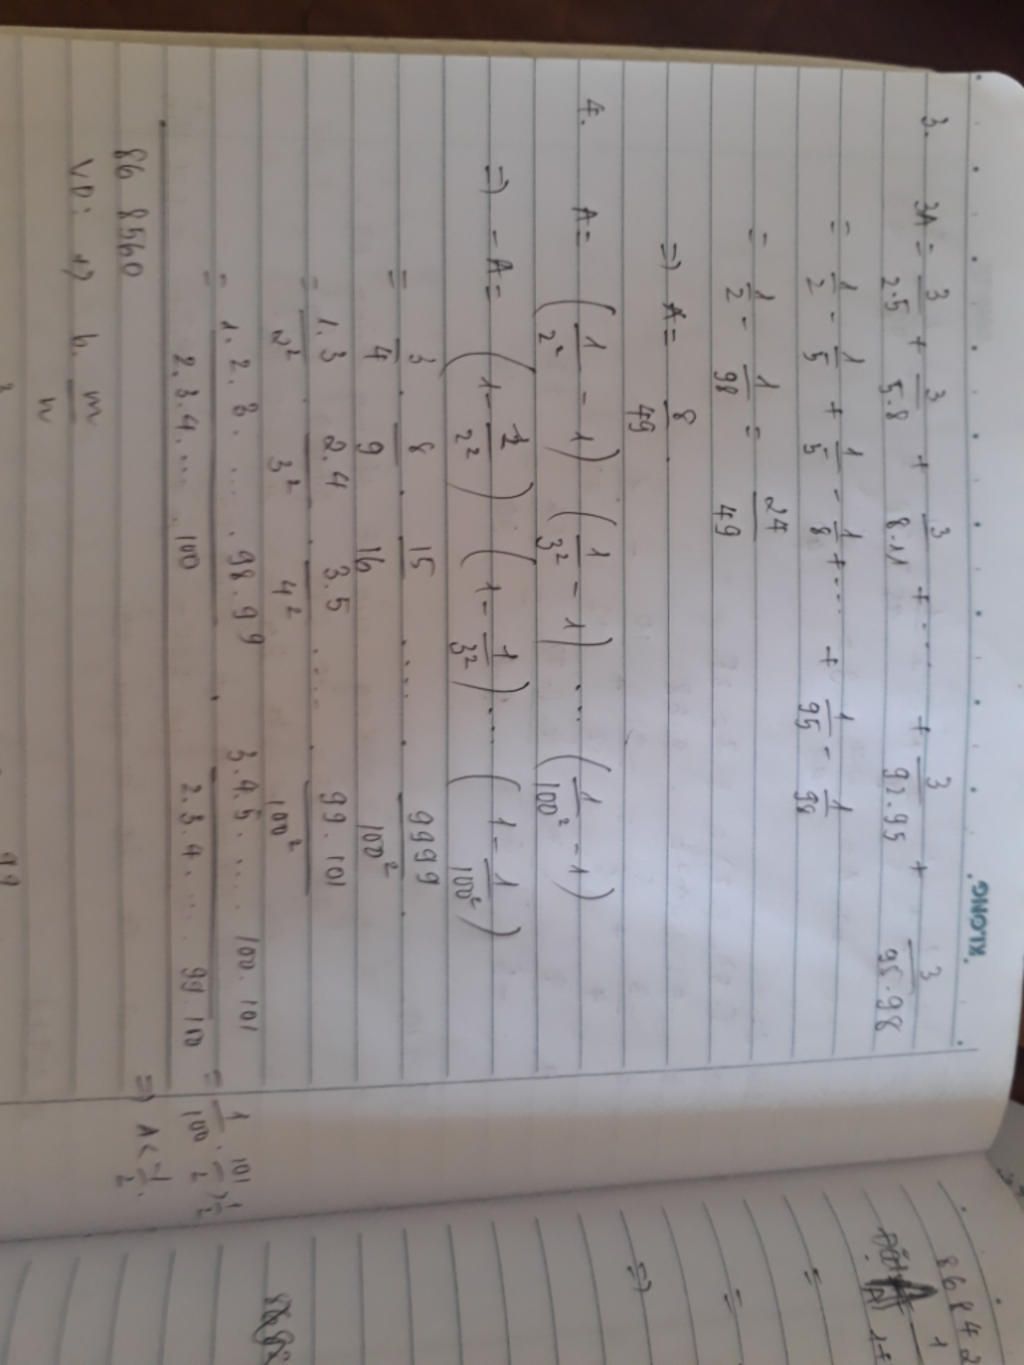 KLONG
3. 3A = 3/2.5 + 3/5.8 + 3/8.11 + .... + 3/92.95 + 3/95.98
= 1/2 - 1/5 + 1/5 - 1/8 + .... + 1/95 - 1/98
= 1/2 - 1/98 = 24/49
=) A = 8/49
4. A = (1/2² - 1) (1/3² - 1) ... (1/100² - 1)
=) - A = (1 - 1/2²) . (1 - 1/3²) ... (1 - 1/100²)
= 3/4 . 8/9 . 15/16 .... . 9999/100²
= 1.3/2² . 2.4/3² . 3.5/4² .... . 99.101/100²
= 1.2.3. .... .98.99/2.3.4. ... .100 . 3.4.5. .... 100.101/2.3.4. .... 99.100 = 1/100 . 101/2 > 1/2
=) A < -1/2.
86 8560
VD: +) b. m/n